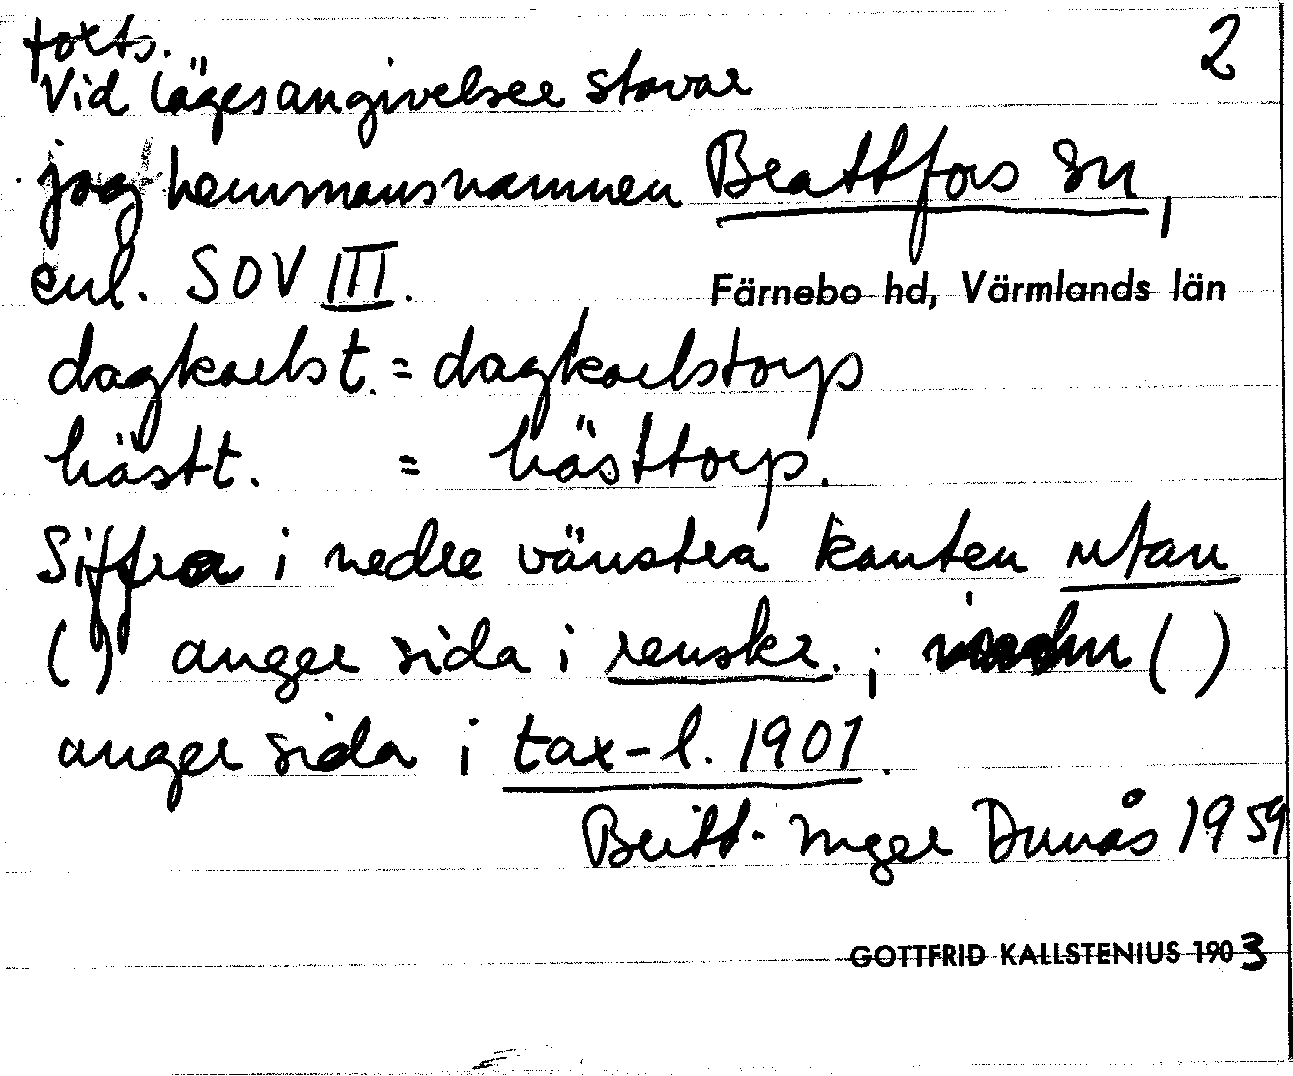 forts. 2
Vid lägesangivelser stavar
jag hemmansnamnen Brattfors Sn,
enl. SOV III.
Färnebo hd, Värmlands län
dagkarlst. = dagkarlstorp
hästt. = hästtorp.
Siffra i nedre vänstra kanten utan
( ) anger sida i renskr. ; inom ( )
anger sida i tax-l. 1901.
Britt-Inger Dunås 1959
GOTTFRID KALLSTENIUS 1903